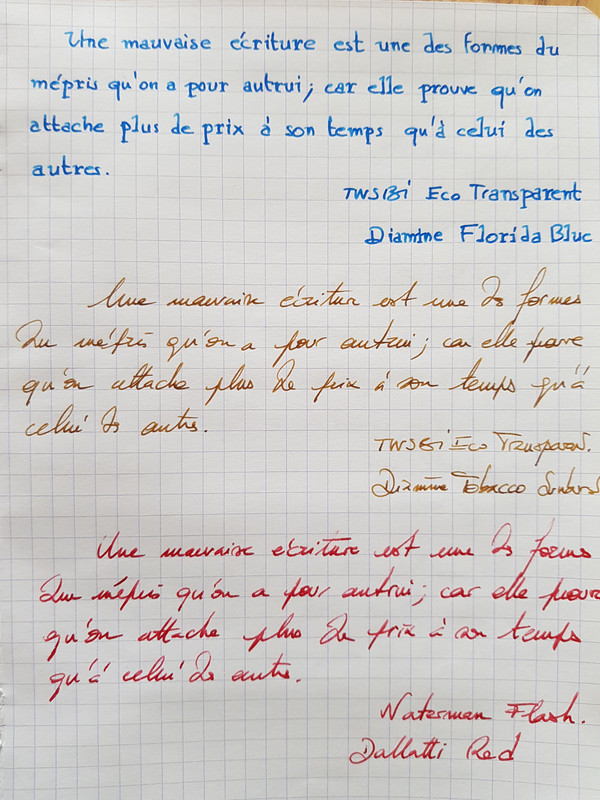 Une mauvaise écriture est une des formes du
mépris qu'on a pour autrui ; car elle prouve qu'on
attache plus de prix à son temps qu'à celui des
autres.
TWSBi Eco Transparent
Diamine Florida Blue
Une mauvaise écriture est une des formes
du mépris qu'on a pour autrui ; car elle prouve
qu'on attache plus de prix à son temps qu'à
celui des autres.
TWSBi Eco Transparent.
Diamine Tobacco Sunburst
Une mauvaise écriture est une des formes
du mépris qu'on a pour autrui ; car elle prouve
qu'on attache plus de prix à son temps
qu'à celui des autres.
Waterman Flash.
Dallatti Red